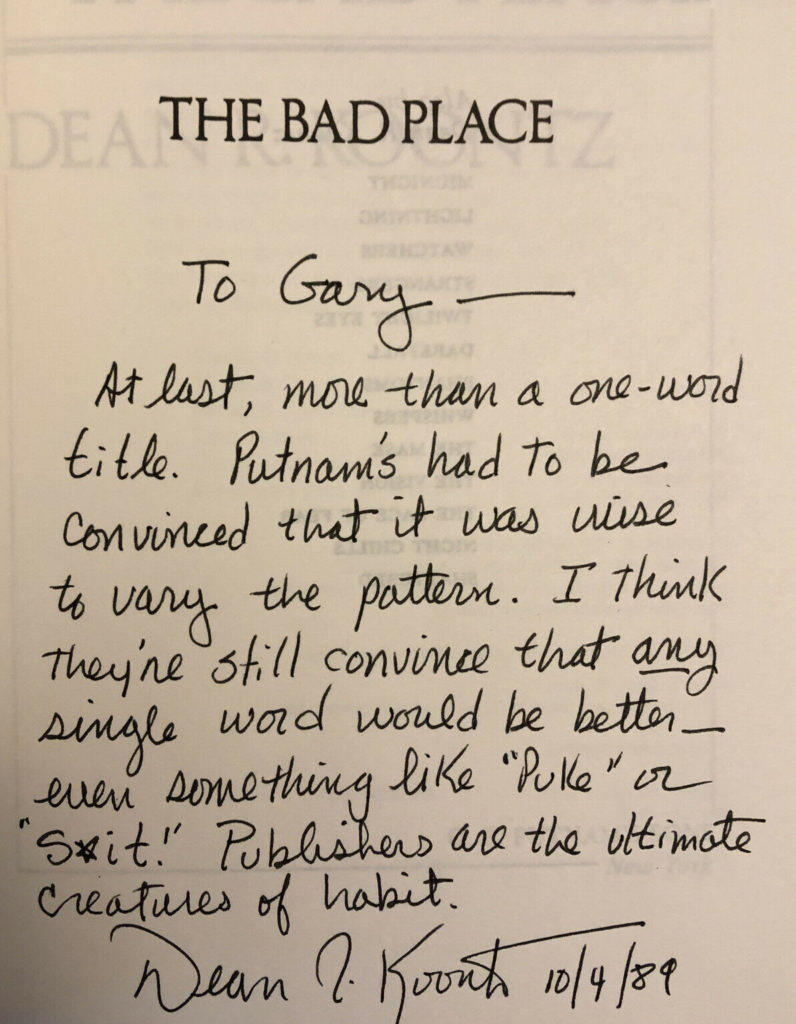 THE BAD PLACE
DEAN R. KOONTZ
MIDNIGHT
LIGHTNING
WATCHERS
TWILIGHT EYES
DARKFALL
WHISPERS
NIGHT CHILLS
To Gary —
At last, more than a one-word
title. Putnam's had to be
convinced that it was wise
to vary the pattern. I think
they're still convince that any
single word would be better—
even something like "Puke" or
"S*it!" Publishers are the ultimate
creatures of habit.
Dean R. Koontz 10/4/89